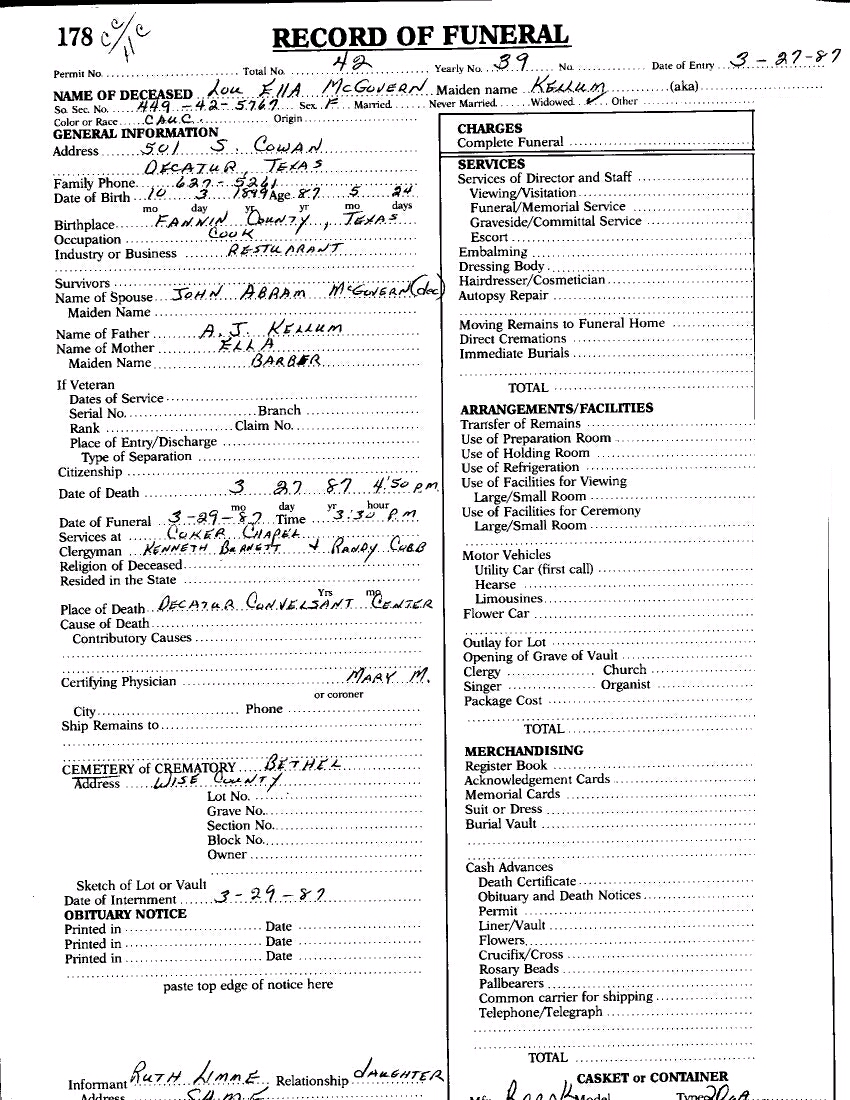 178 c c/11 c
RECORD OF FUNERAL
Permit No. Total No. 42 Yearly No. 39 No. Date of Entry 3-27-87
NAME OF DECEASED Lou Ella McGovern Maiden name Kellum (aka)
So. Sec. No. 449-42-5767 Sex F Married Never Married Widowed ✓ Other
Color or Race CAUC. Origin
GENERAL INFORMATION
Address 501 S. Cowan
Decatur, Texas
Family Phone 627-5261
Date of Birth 10 3 1899 Age 87 5 24
mo day yr yr mo days
Birthplace Fannin County, Texas
Occupation Cook
Industry or Business Resturant
Survivors
Name of Spouse John Abram McGovern (dec)
Maiden Name
Name of Father A.J. Kellum
Name of Mother Ella
Maiden Name Barber
If Veteran
Dates of Service
Serial No. Branch
Rank Claim No.
Place of Entry/Discharge
Type of Separation
Citizenship
Date of Death 3 27 87 4:50 p.m
mo day yr hour
Date of Funeral 3-29-87 Time 3:30 p.m
Services at Coker Chapel
Clergyman Kenneth Burnett + Randy Cobb
Religion of Deceased
Resided in the State
Yrs mo
Place of Death Decatur Convelsant Center
Cause of Death
Contributory Causes
Certifying Physician Mary M.
or coroner
City Phone
Ship Remains to
CEMETERY of CREMATORY Bethel
Address Wise County
Lot No.
Grave No.
Section No.
Block No.
Owner
Sketch of Lot or Vault
Date of Internment 3-29-87
OBITUARY NOTICE
Printed in Date
Printed in Date
Printed in Date
paste top edge of notice here
Informant Ruth Limme Relationship daughter
Address Same
CHARGES
Complete Funeral
SERVICES
Services of Director and Staff
Viewing/Visitation
Funeral/Memorial Service
Graveside/Committal Service
Escort
Embalming
Dressing Body
Hairdresser/Cosmetician
Autopsy Repair
Moving Remains to Funeral Home
Direct Cremations
Immediate Burials
TOTAL
ARRANGEMENTS/FACILITIES
Transfer of Remains
Use of Preparation Room
Use of Holding Room
Use of Refrigeration
Use of Facilities for Viewing
Large/Small Room
Use of Facilities for Ceremony
Large/Small Room
Motor Vehicles
Utility Car (first call)
Hearse
Limousines
Flower Car
Outlay for Lot
Opening of Grave of Vault
Clergy Church
Singer Organist
Package Cost
TOTAL
MERCHANDISING
Register Book
Acknowledgement Cards
Memorial Cards
Suit or Dress
Burial Vault
Cash Advances
Death Certificate
Obituary and Death Notices
Permit
Liner/Vault
Flowers
Crucifix/Cross
Rosary Beads
Pallbearers
Common carrier for shipping
Telephone/Telegraph
TOTAL
CASKET or CONTAINER
Model Type 20ga